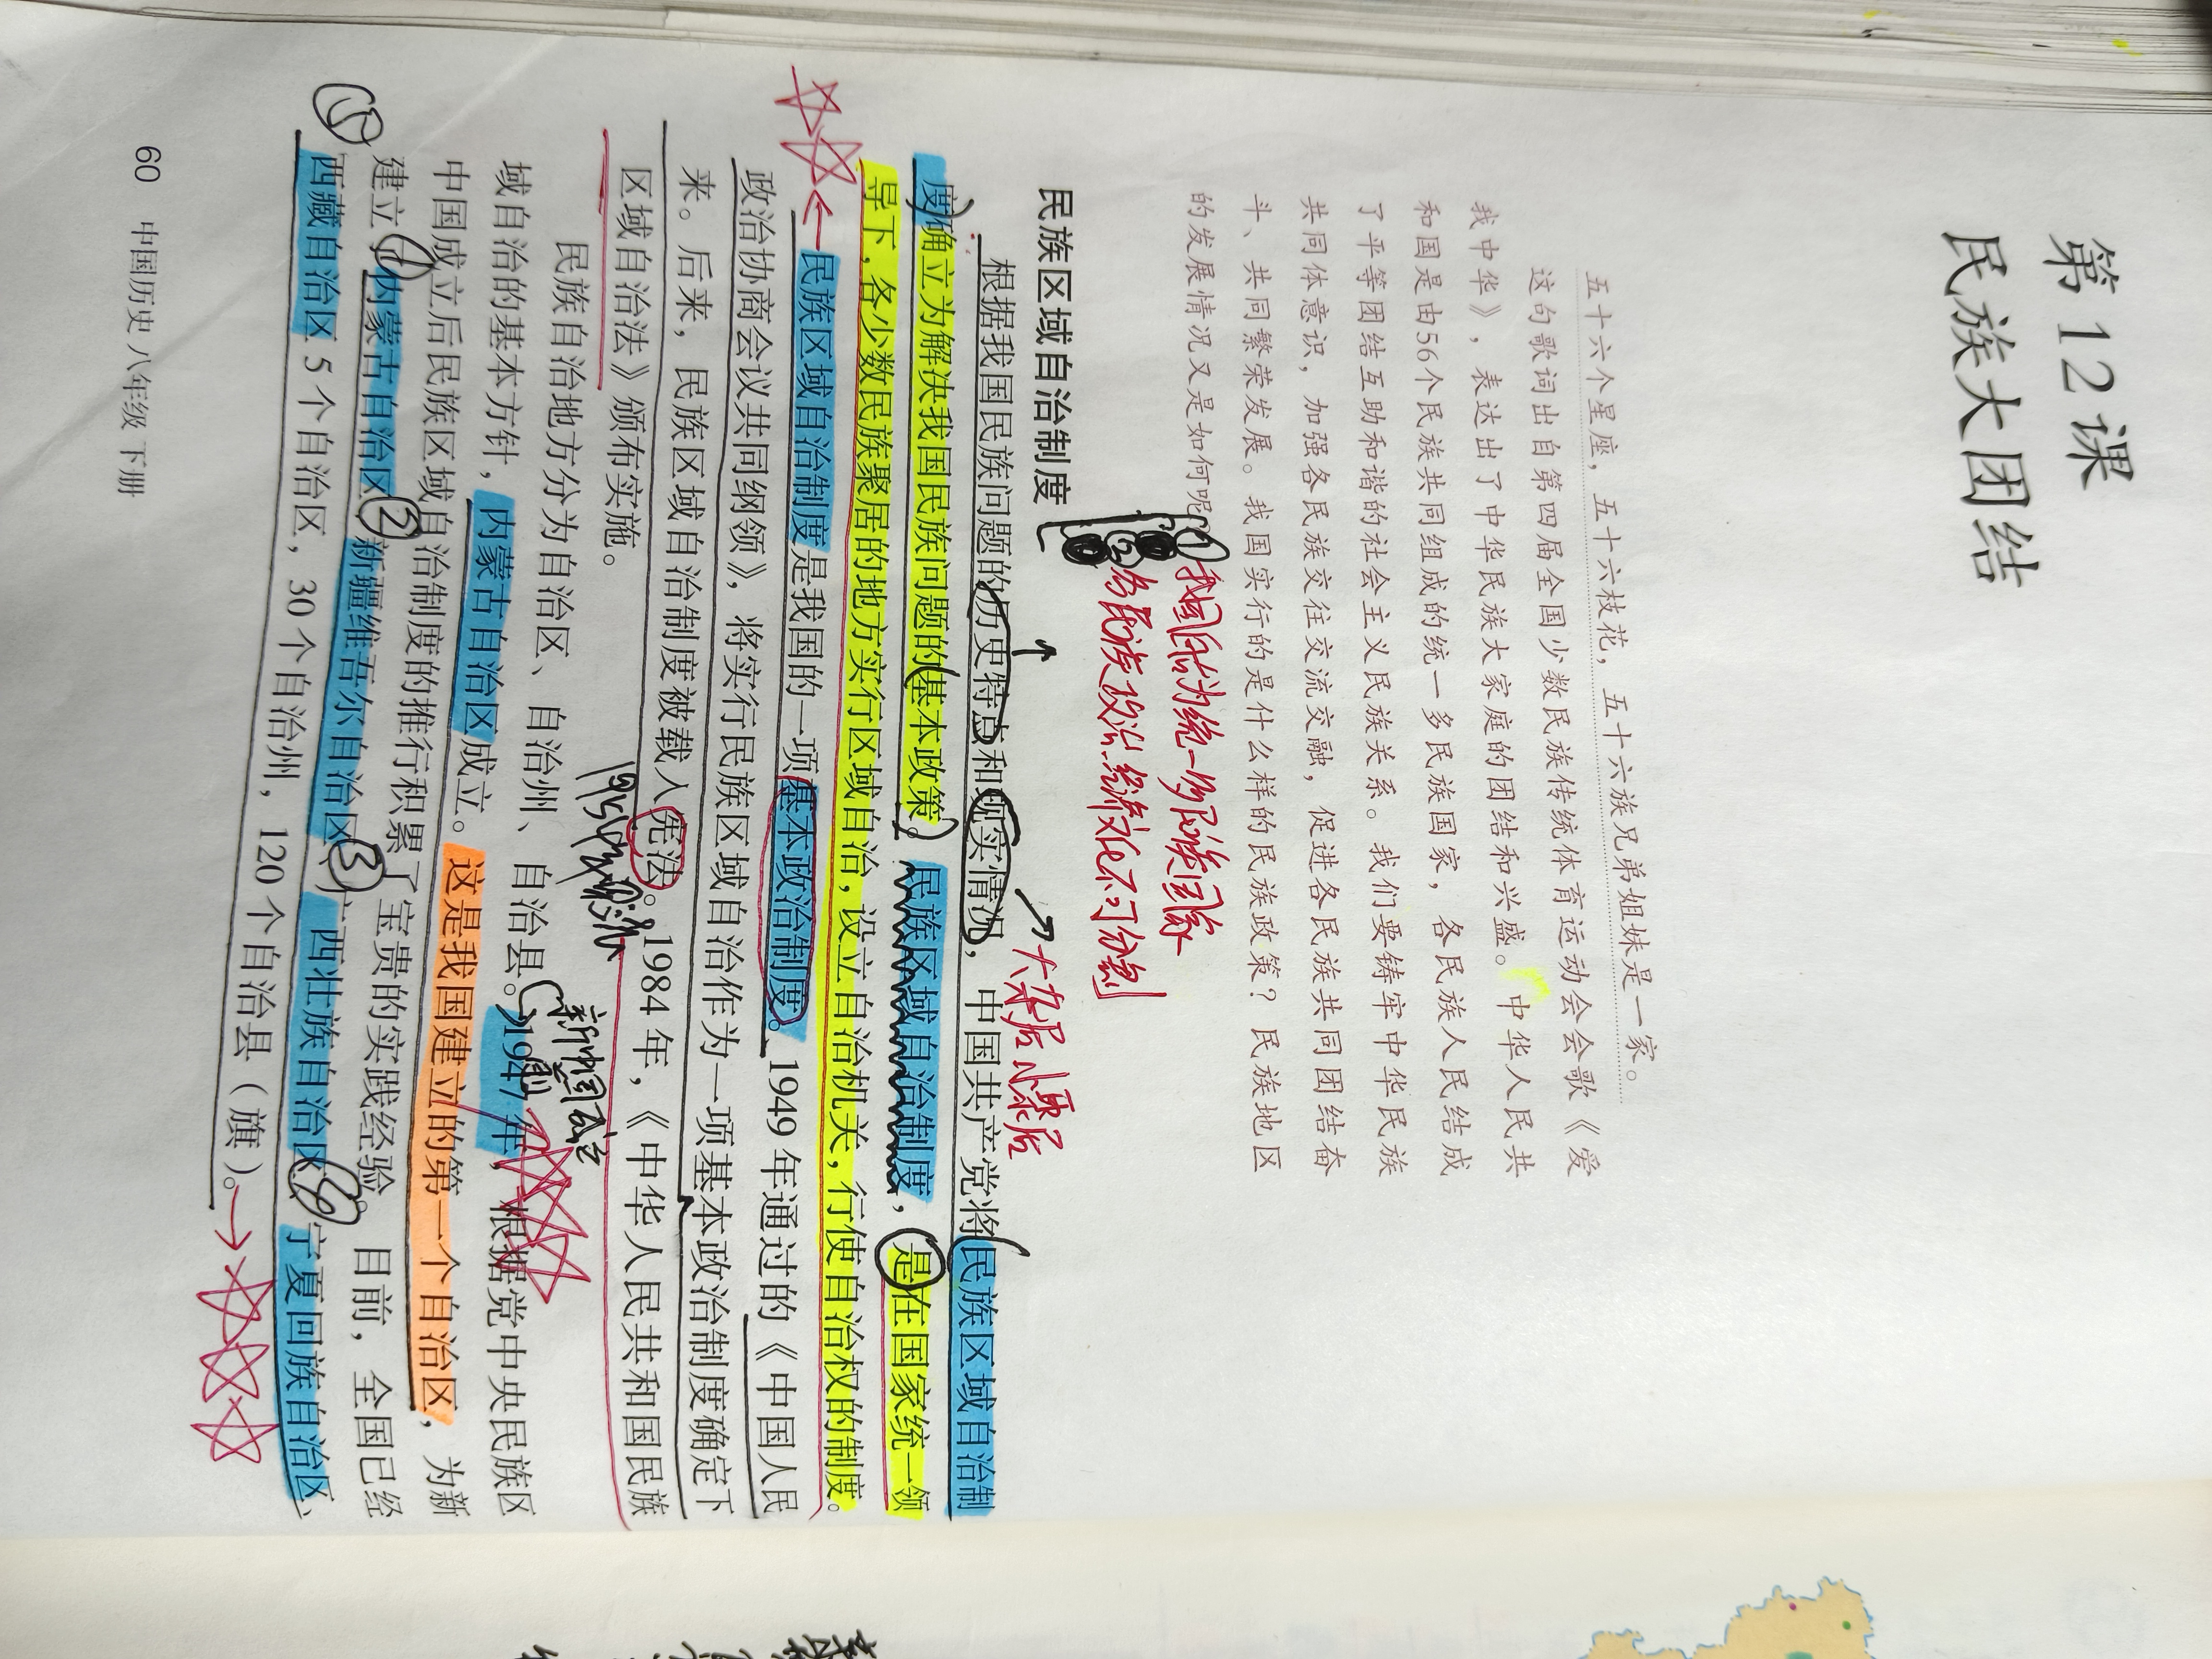 第12课
民族大团结
五十六个星座，五十六枝花，五十六族兄弟姐妹是一家。
这句歌词出自第四届全国少数民族传统体育运动会会歌《爱
我中华》，表达出了中华民族大家庭的团结和兴盛。中华人民共
和国是由56个民族共同组成的统一多民族国家，各民族人民结成
了平等团结互助和谐的社会主义民族关系。我们要铸牢中华民族
共同体意识，加强各民族交往交流交融，促进各民族共同团结奋
斗、共同繁荣发展。我国实行的是什么样的民族政策？民族地区
的发展情况又是如何呢？
①我国历为统一多民族国家
②各民族政治、经济、文化不可分割
民族区域自治制度
大杂居 小聚居
根据我国民族问题的历史特点和现实情况，中国共产党将民族区域自治制
度确立为解决我国民族问题的基本政策。民族区域自治制度，是在国家统一领
导下，各少数民族聚居的地方实行区域自治，设立自治机关，行使自治权的制度。
民族区域自治制度是我国的一项基本政治制度。1949年通过的《中国人民
政治协商会议共同纲领》，将实行民族区域自治作为一项基本政治制度确定下
来。后来，民族区域自治制度被载入宪法。1984年，《中华人民共和国民族
区域自治法》颁布实施。
1954年
新中国成立
民族自治地方分为自治区、自治州、自治县。1947年，根据党中央民族区
域自治的基本方针，内蒙古自治区成立。这是我国建立的第一个自治区，为新
中国成立后民族区域自治制度的推行积累了宝贵的实践经验。目前，全国已经
建立了①内蒙古自治区②新疆维吾尔自治区③广西壮族自治区④宁夏回族自治区、
⑤西藏自治区5个自治区，30个自治州，120个自治县（旗）。
60 中国历史 八年级 下册